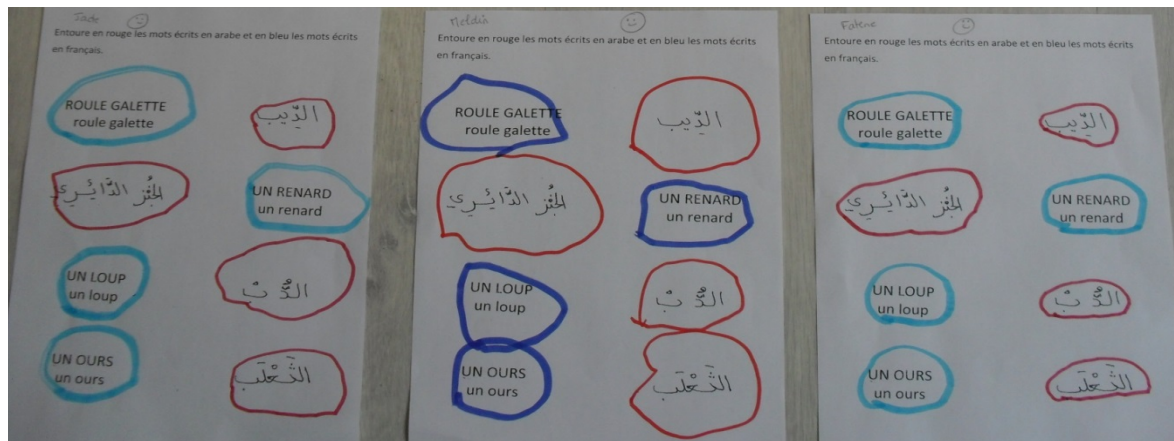 Jade
Entoure en rouge les mots écrits en arabe et en bleu les mots écrits
en français.
ROULE GALETTE
roule galette
الذِّيب
الخُبْز الدَّائِري
UN RENARD
un renard
UN LOUP
un loup
الدُّبْ
UN OURS
un ours
الثَّعْلَب
Meldia
Entoure en rouge les mots écrits en arabe et en bleu les mots écrits
en français.
ROULE GALETTE
roule galette
الذِّيب
الخُبْز الدَّائِري
UN RENARD
un renard
UN LOUP
un loup
الدُّبْ
UN OURS
un ours
الثَّعْلَب
Fatene
Entoure en rouge les mots écrits en arabe et en bleu les mots écrits
en français.
ROULE GALETTE
roule galette
الذِّيب
الخُبْز الدَّائِري
UN RENARD
un renard
UN LOUP
un loup
الدُّبْ
UN OURS
un ours
الثَّعْلَب